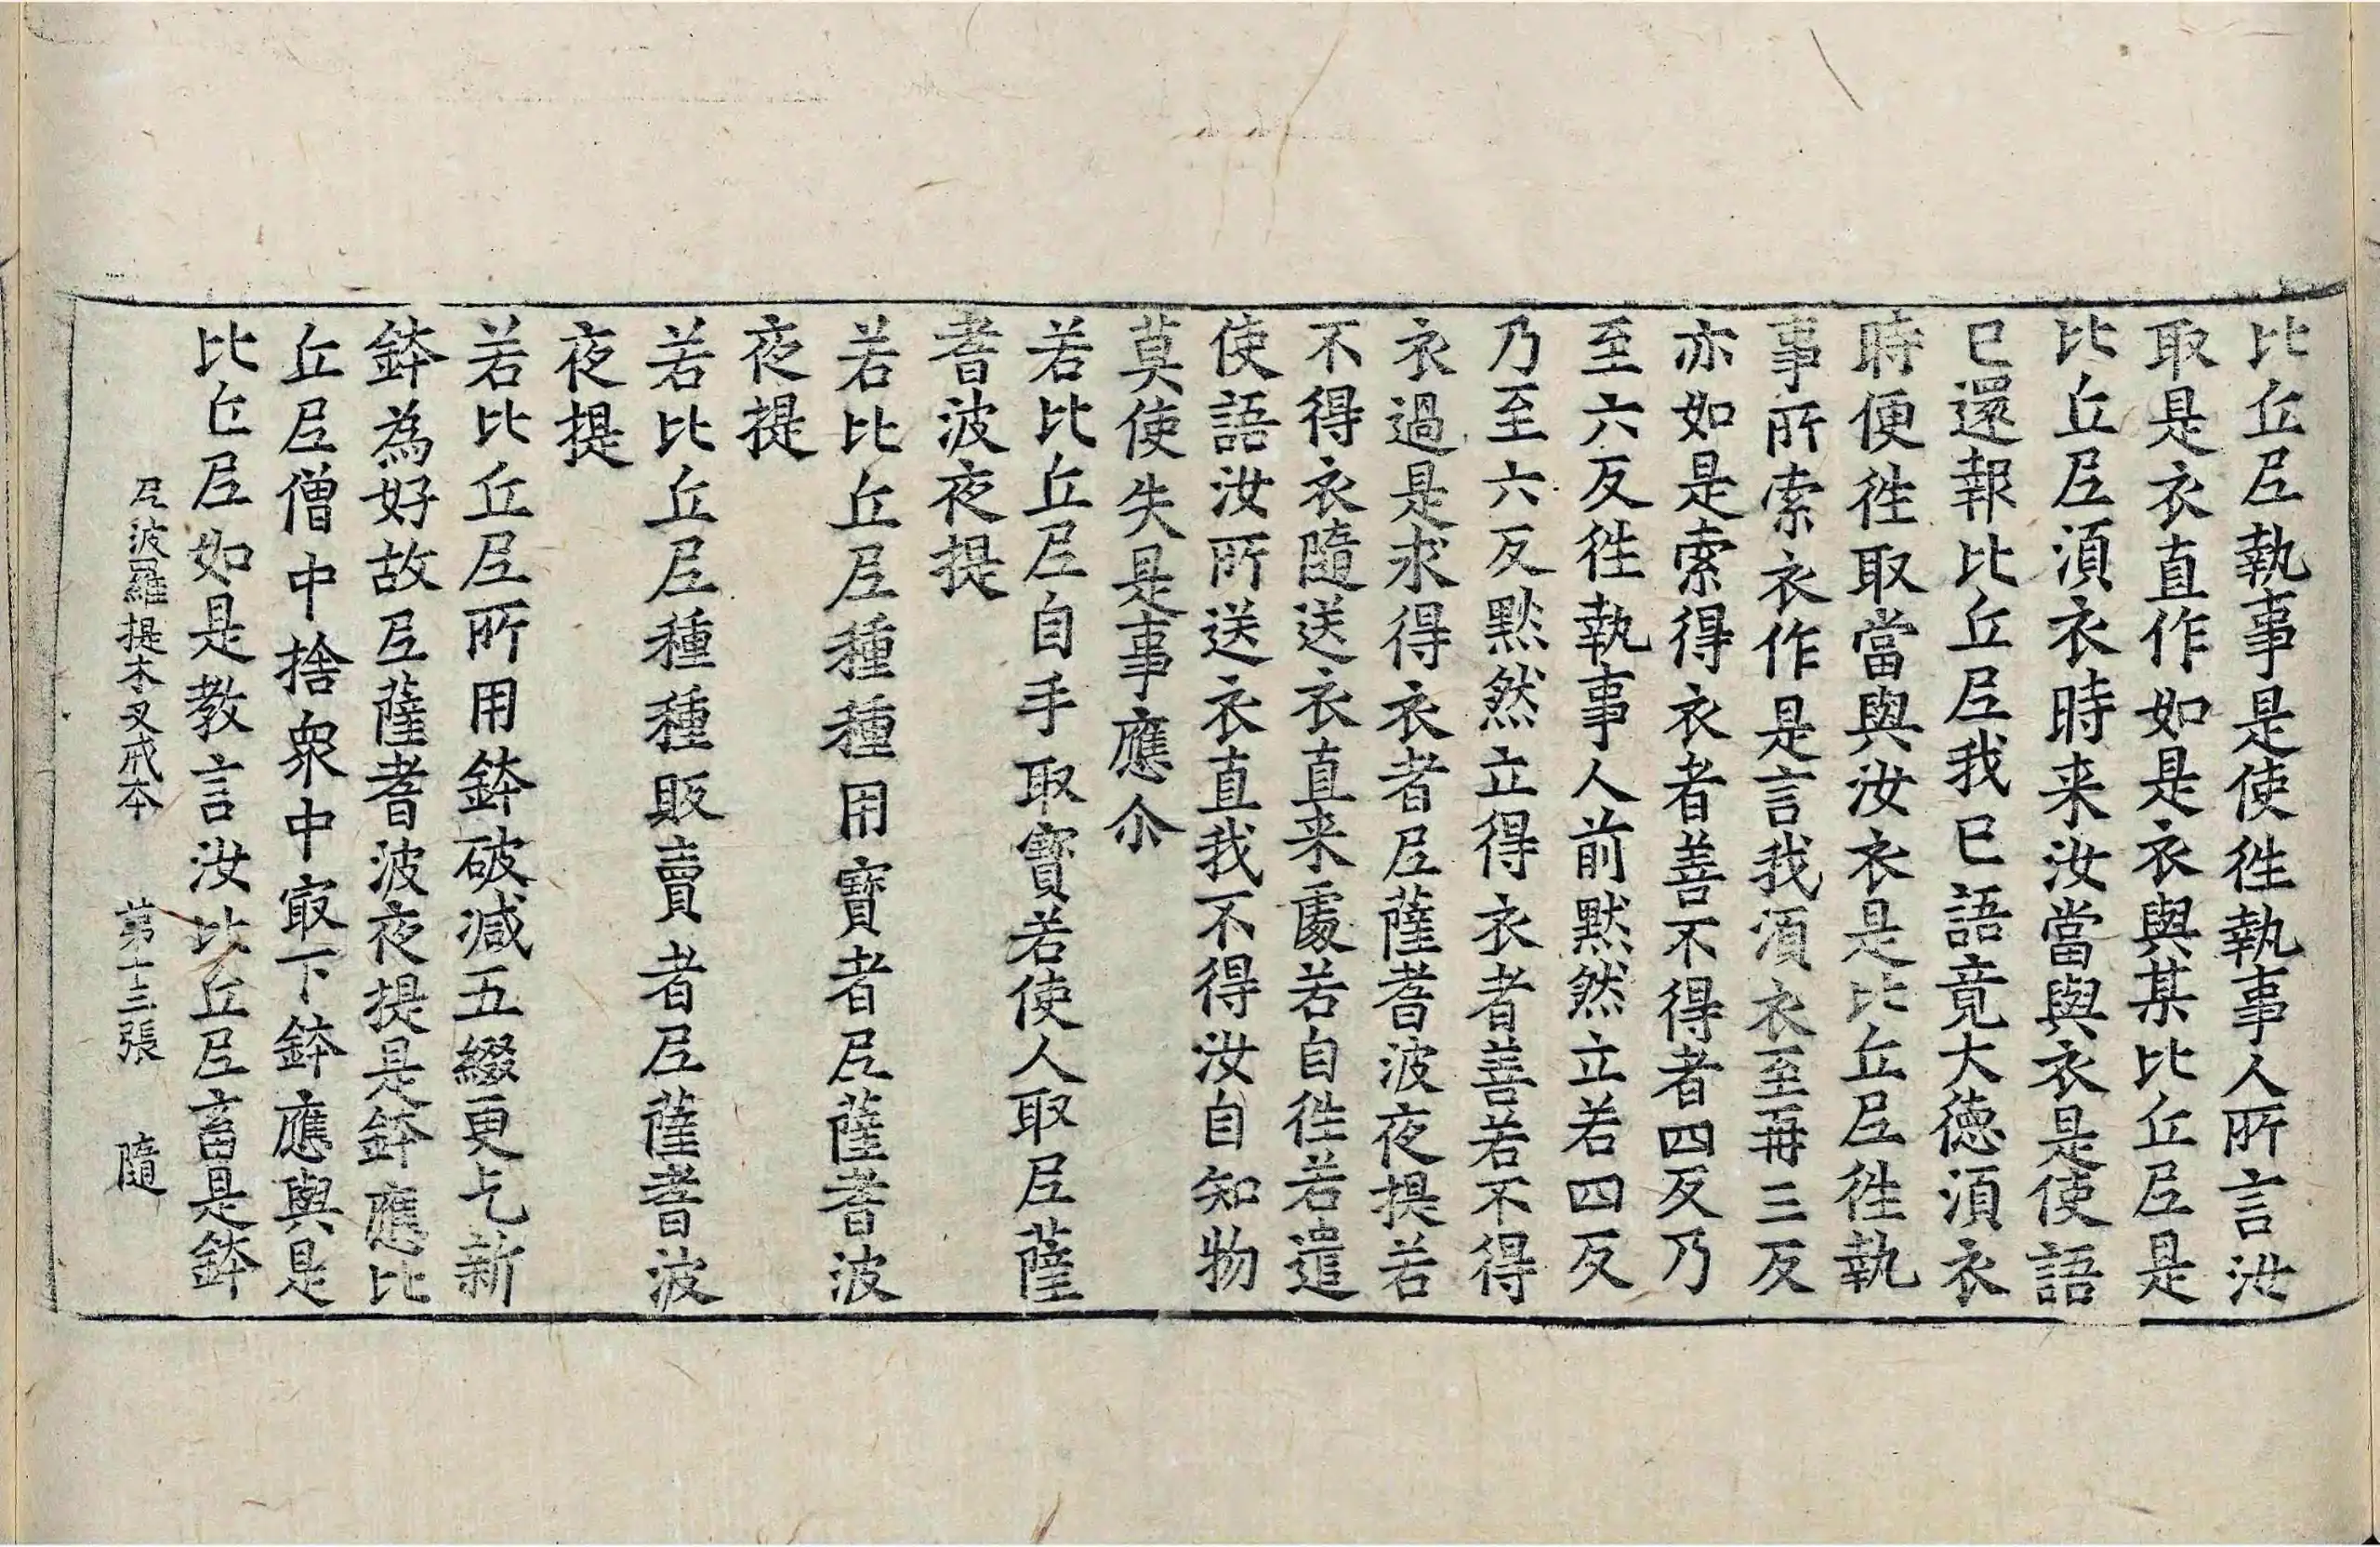 比丘尼執事是使徃執事人所言汝
取是衣直作如是衣與某比丘尼是
比丘尼湏衣時来汝當與衣是使語
已還報比丘尼我已語竟大德湏衣
時便徃取當與汝衣是比丘尼徃執
事所索衣作是言我湏衣至再三反
亦如是索得衣者善不得者四反乃
至六反徃執事人前默然立若四反
乃至六反默然立得衣者善若不得
衣過是求得衣者尼薩耆波夜提若
不得衣隨送衣直来處若自徃若遣
使語汝所送衣直我不得汝自知物
莫使失是事應尒
若比丘尼自手取寶若使人取尼薩
耆波夜提
若比丘尼種種用寶者尼薩耆波
夜提
若比丘尼種種販賣者尼薩耆波
夜提
若比丘尼所用鉢破減五綴更乞新
鉢為好故尼薩耆波夜提是鉢應比
丘尼僧中捨衆中㝡下鉢應與是
比丘尼如是教言汝比丘尼畜是鉢
尼波羅提木叉戒本 第十三張 隨